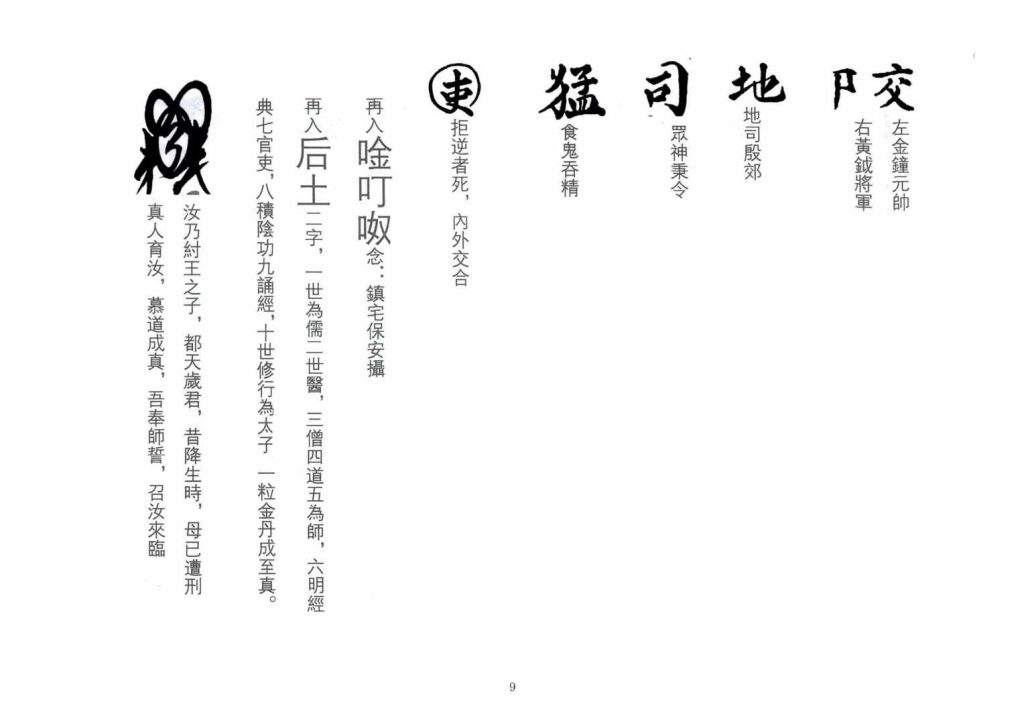 交 左金鐘元帥
卩 右黃鉞將軍
地 地司殷郊
司 眾神秉令
猛 食鬼吞精
吏 拒逆者死，內外交合
再入唫叮呶念：鎮宅保安攝
再入后土二字，一世為儒二世醫，三僧四道五為師，六明經
典七官吏，八積陰功九誦經，十世修行為太子 一粒金丹成至真。
汝乃紂王之子，都天歲君，昔降生時，母已遭刑
真人育汝，慕道成真，吾奉師誓，召汝來臨
9